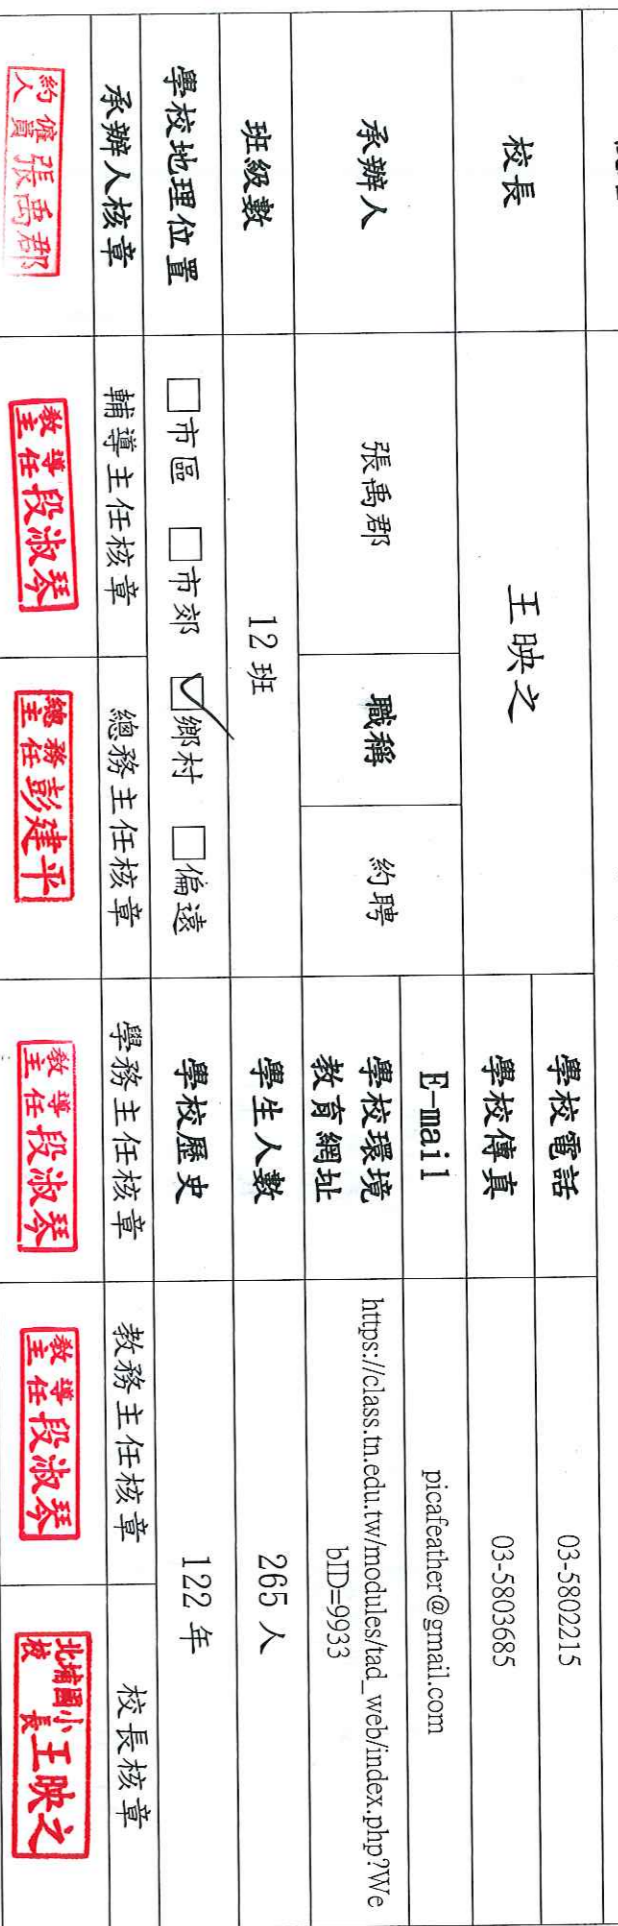 學校電話 03-5802215
校長 王映之 學校傳真 03-5803685
承辦人 張禹郡 職稱 約聘 E-mail picafeather@gmail.com
學校環境
教育網址
https://class.tn.edu.tw/modules/tad_web/index.php?We
bID=9933
班級數 12 班 學生人數 265 人
學校地理位置 □市區 □市郊 ☑鄉村 □偏遠 學校歷史 122 年
承辦人核章 輔導主任核章 總務主任核章 學務主任核章 教務主任核章 校長核章
約僱人員 張禹郡
教導主任 段淑琴
總務主任 彭建平
教導主任 段淑琴
教導主任 段淑琴
北埔國小校長 王映之